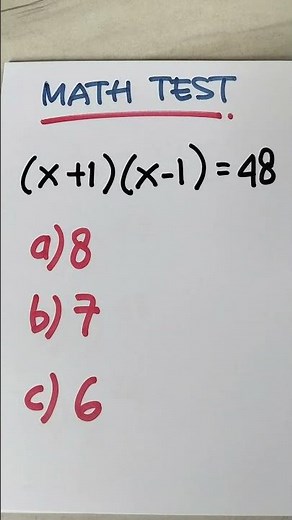 MATH TEST
(x+1)(x-1)=48
a) 8
b) 7
c) 6